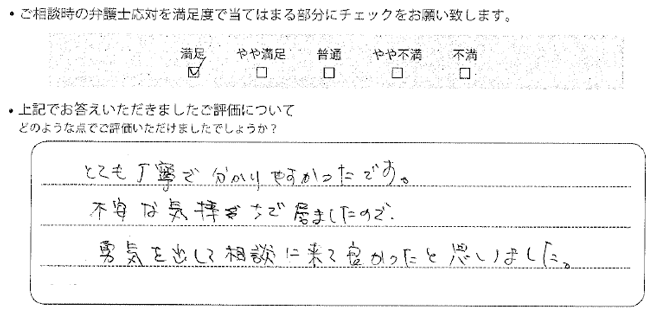 ・ご相談時の弁護士応対を満足度で当てはまる部分にチェックをお願い致します。
満足 やや満足 普通 やや不満 不満
☑ □ □ □ □
・上記でお答えいただきましたご評価について
どのような点でご評価いただけましたでしょうか？
とても丁寧で分かりやすかったです。
不安な気持ちで居ましたので、
勇気を出して相談に来て良かったと思いました。